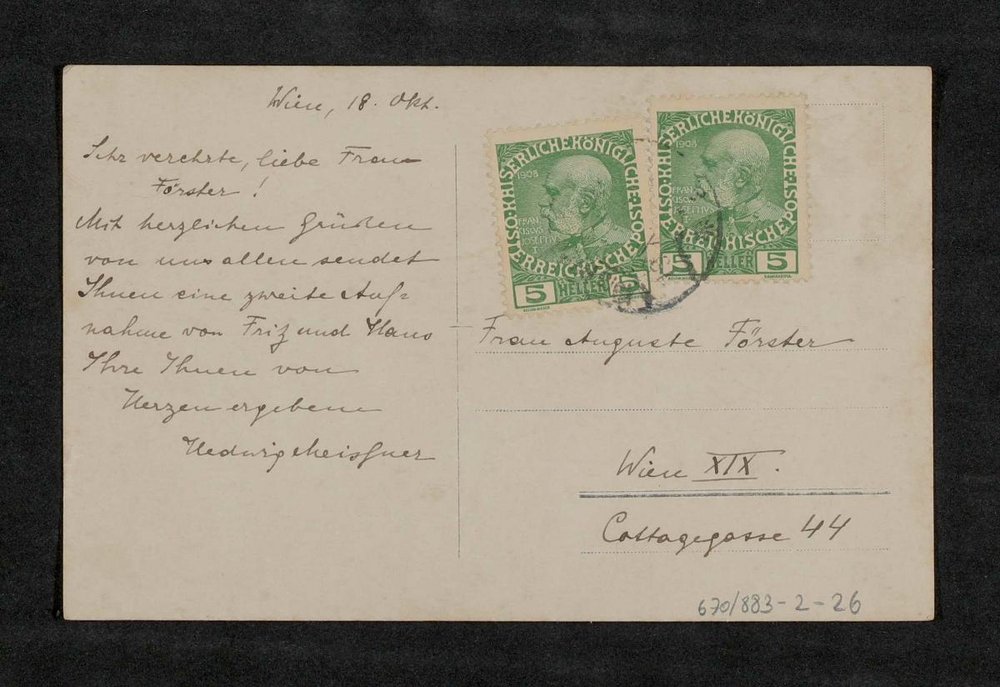 Wien, 18. Okt.
Sehr verehrte, liebe Frau
Förster !
Mit herzlichen Grüßen
von uns allen sendet
Ihnen eine zweite Auf=
nahme von Friz und Hans
Ihre Ihnen von
Herzen ergebene
Hedwig Meissner
KAISERLICHEKÖNIGLICHE
ÖSTERREICHISCHE POST
1908
FRAN
CISCVS
IOSEPHVS
I
5 HELLER 5
KAISERLICHEKÖNIGLICHE
ÖSTERREICHISCHE POST
1908
FRAN
CISCVS
IOSEPHVS
I
5 HELLER 5
Frau Auguste Förster
Wien XIX.
Cottagegasse 44
670/883-2-26